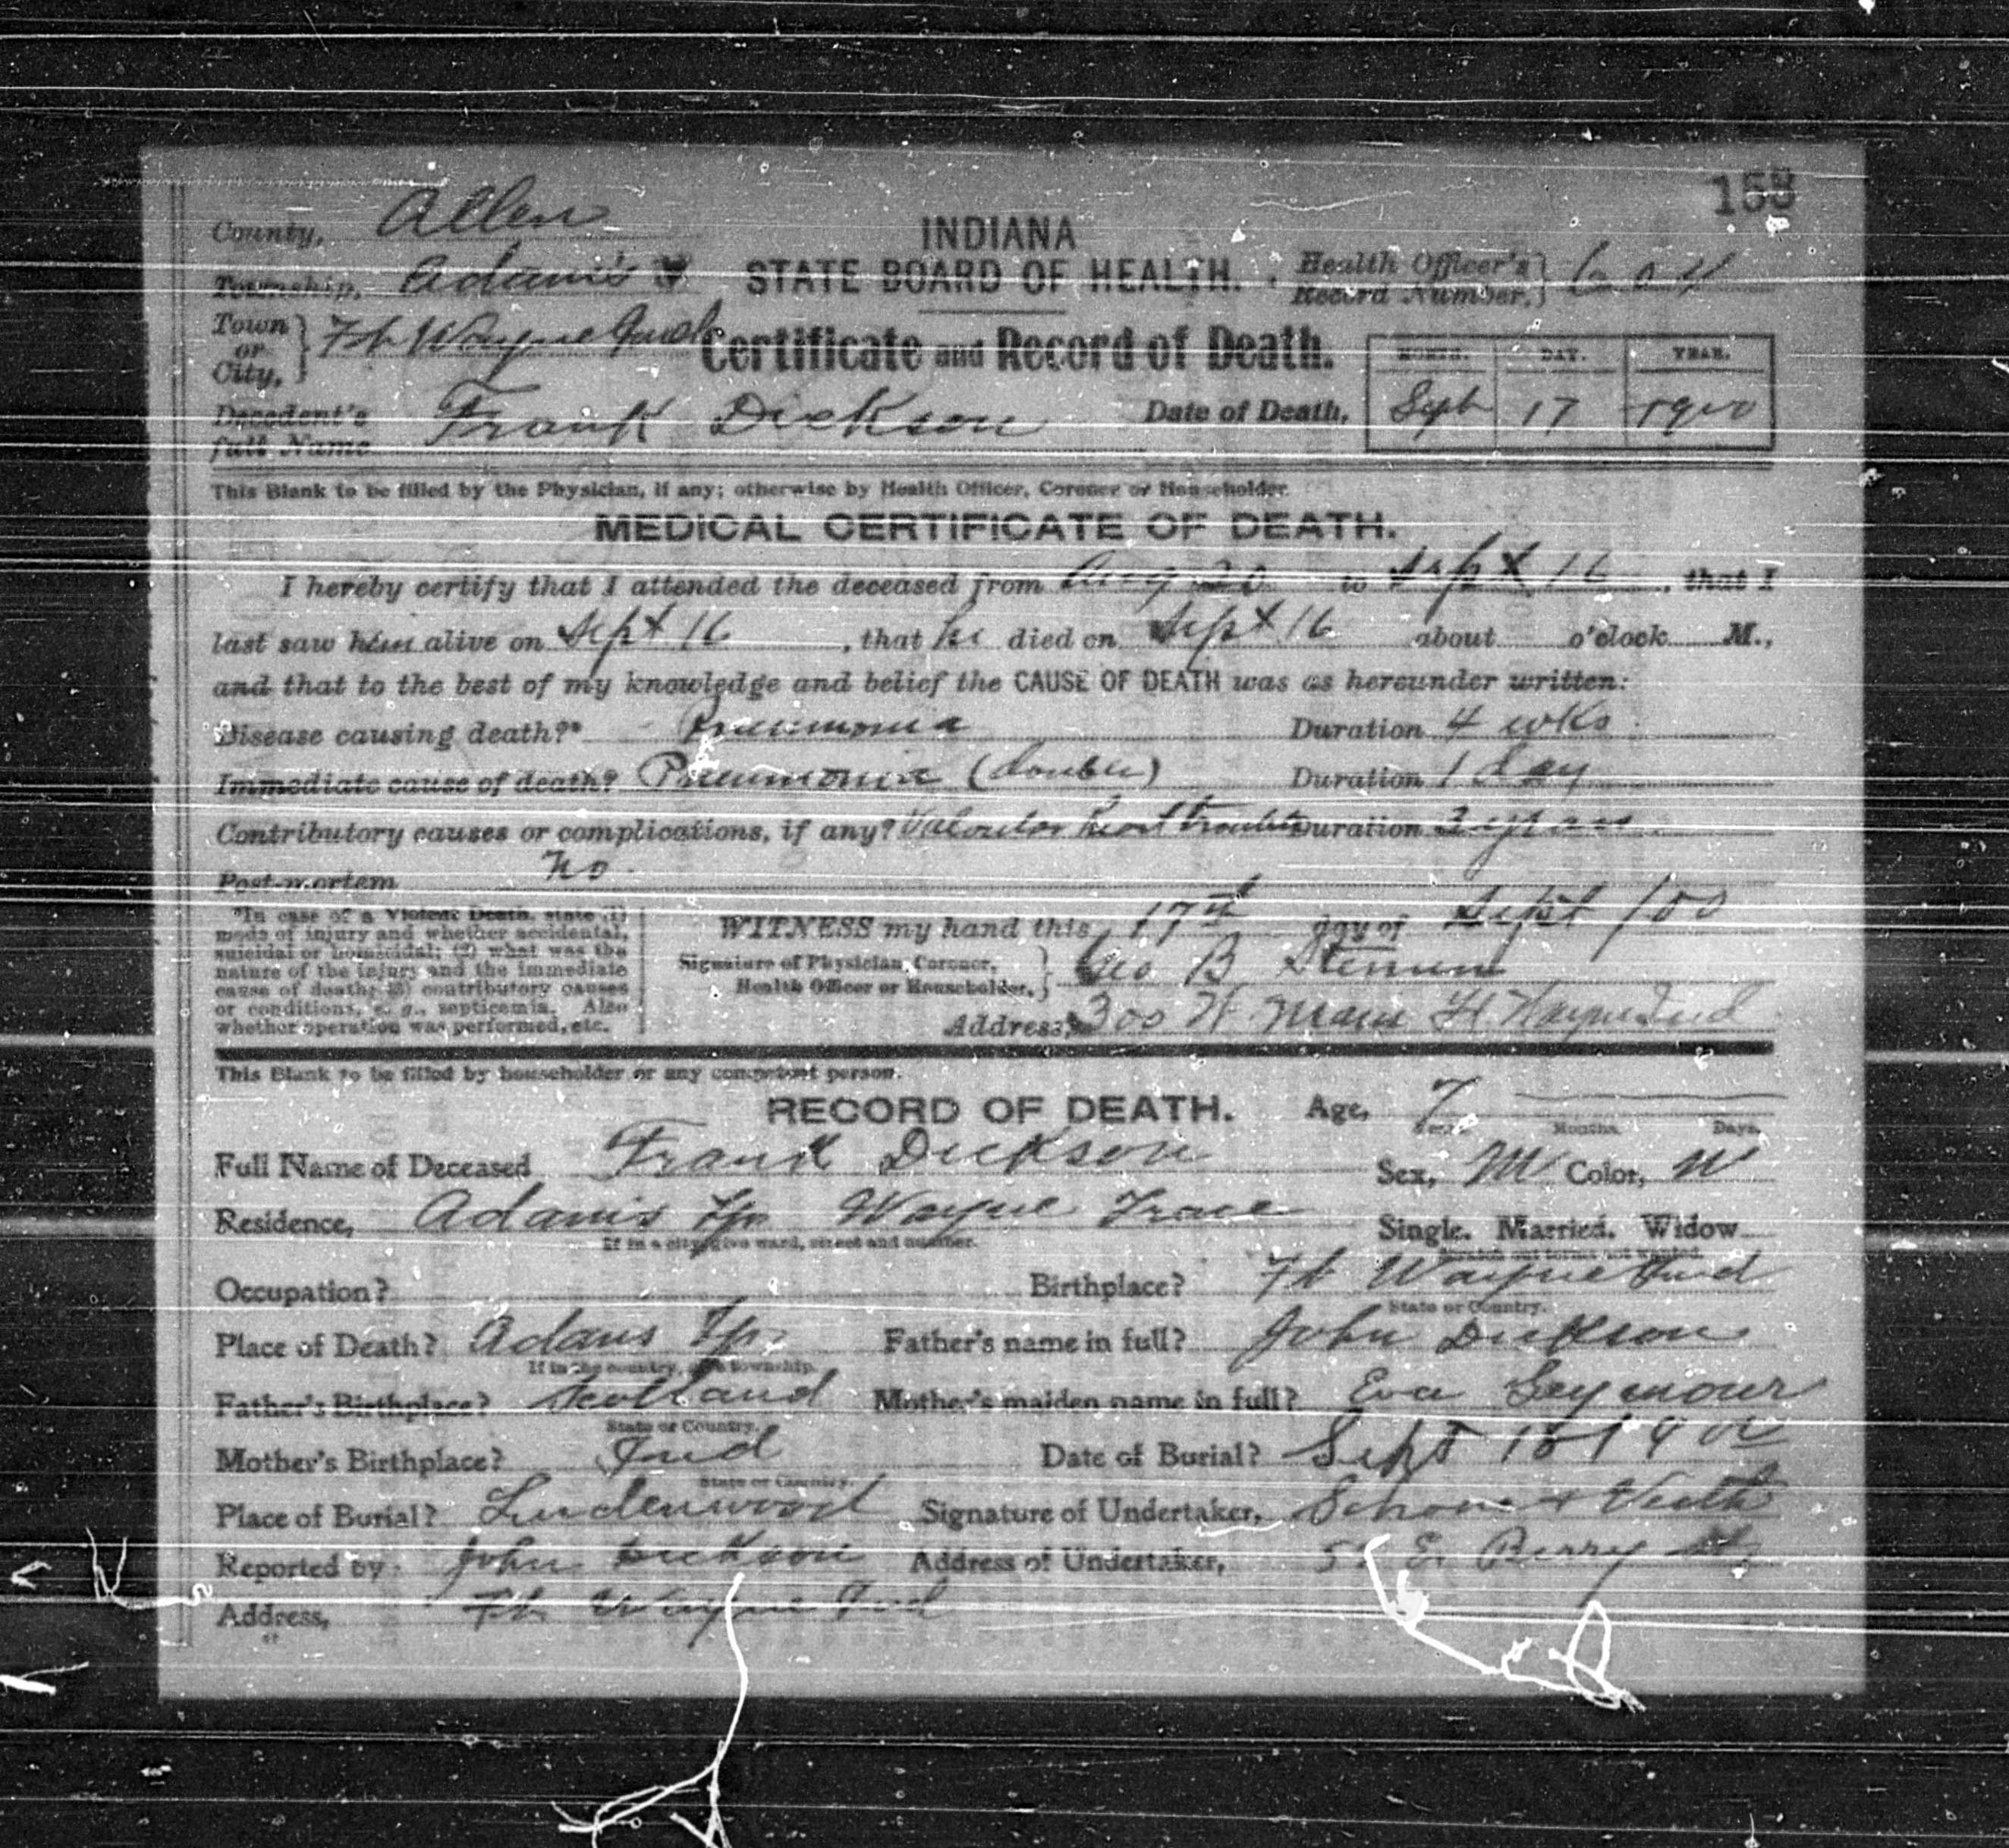 153
County, Allen
INDIANA
Township, Adams
STATE BOARD OF HEALTH.
Health Officer's Record Number, 604
Town or City, Ft Wayne Ind
Certificate and Record of Death.
MONTH. DAY. YEAR.
Decedent's full Name Frank Dickson
Date of Death, Sept 17 1900
This Blank to be filled by the Physician, if any; otherwise by Health Officer, Coroner or Householder.
MEDICAL CERTIFICATE OF DEATH.
I hereby certify that I attended the deceased from Aug 20 to Sept 16, that I
last saw him alive on Sept 16, that he died on Sept 16 about o'clock M.,
and that to the best of my knowledge and belief the CAUSE OF DEATH was as hereunder written:
Disease causing death?* Pneumonia Duration 4 wks
Immediate cause of death? Pneumonia (double) Duration 1 day
Contributory causes or complications, if any? Valvular heart trouble Duration years
Post-mortem no.
*In case of a Violent Death, state (1)
mode of injury and whether accidental,
suicidal or homicidal; (2) what was the
nature of the injury and the immediate
cause of death; (3) contributory causes
or conditions, e. g., septicemia. Also
whether operation was performed, etc.
WITNESS my hand this 17th day of Sept 100
Signature of Physician, Coroner,
Health Officer or Householder, Geo B Stemen
Address, 300 W Main Ft Wayne Ind
This Blank to be filled by householder or any competent person.
RECORD OF DEATH. Age, 7
Years. Months. Days.
Full Name of Deceased Frank Dickson Sex, M Color, W
Residence, Adams Tp Wayne Trace Single. Married. Widow
If in a city, give ward, street and number. Scratch out terms not wanted.
Occupation? Birthplace? Ft Wayne Ind
State or Country.
Place of Death? Adams Tp. Father's name in full? John Dickson
If in the country, give township.
Father's Birthplace? Scotland Mother's maiden name in full? Eva Seymour
State or Country.
Mother's Birthplace? Ind Date of Burial? Sept 18 1900
State or Country.
Place of Burial? Lindenwood Signature of Undertaker, Schone & Veith
Reported by John Dickson Address of Undertaker, E. Berry St
Address, Ft Wayne Ind